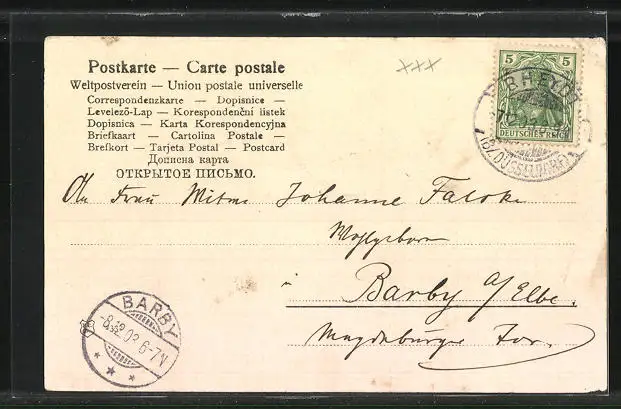 Postkarte — Carte postale
Weltpostverein — Union postale universelle
Correspondenzkarte — Dopisnice —
Levelező-Lap — Korespondenční lístek
Dopisnica — Karta Korespondencyjna
Briefkaart — Cartolina Postale —
Brefkort — Tarjeta Postal — Postcard
Дописна карта
ОТКРЫТОЕ ПИСЬМО.
xxx
5 5
DEUTSCHES REICH
RHEYDT
(BZ. DÜSSELDORF)
Frau Witwe Johanne
Wohlgeboren
Barby a/Elbe.
Magdeburger
BARBY
-8.12.02 6-7N